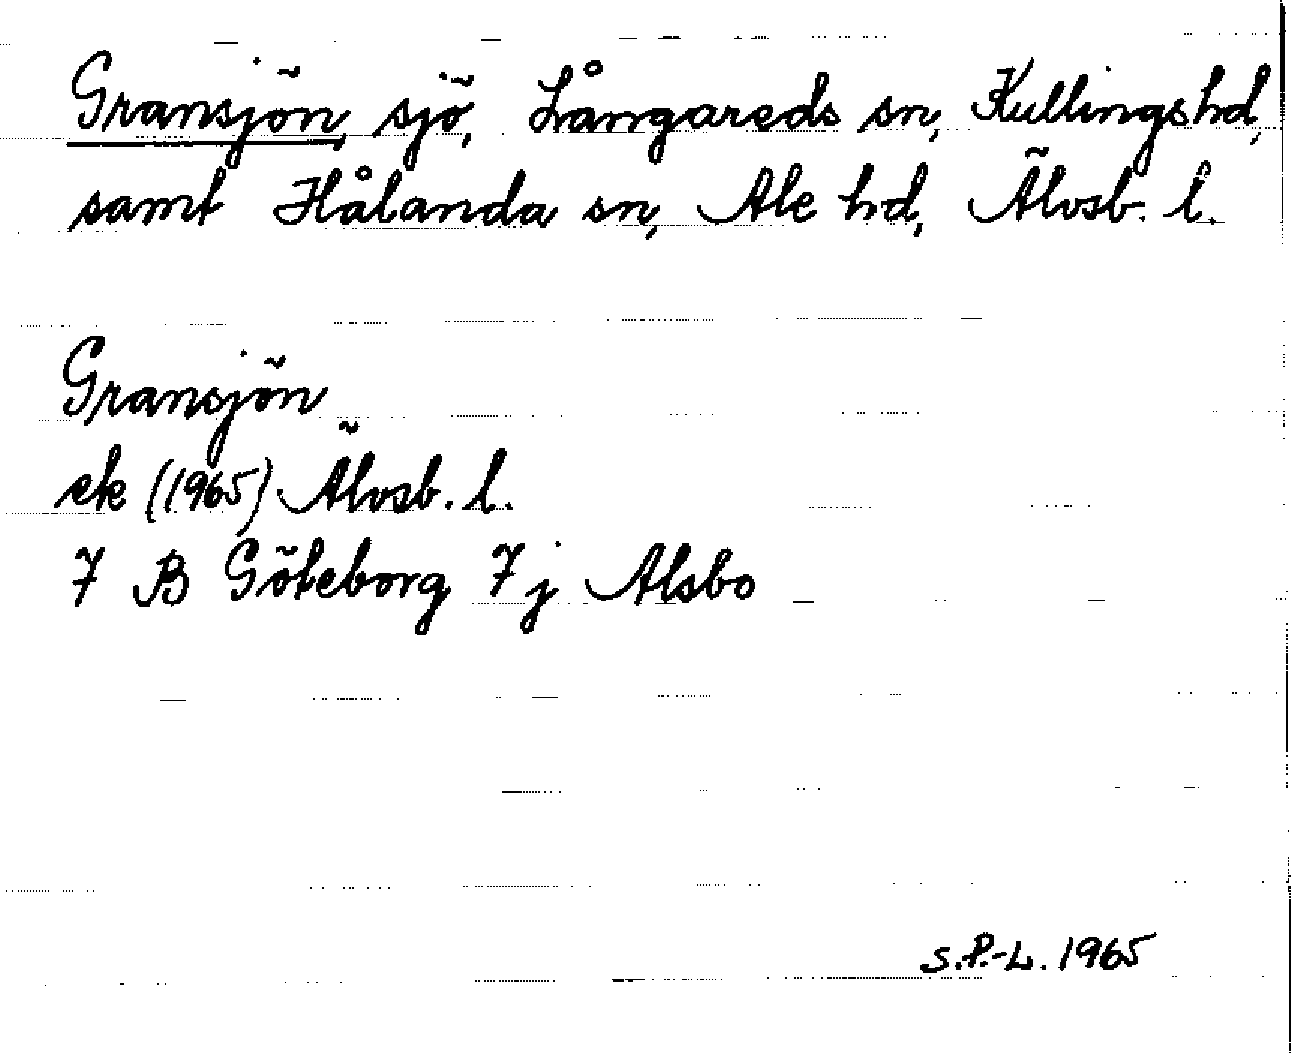 Gransjön, sjö, Långareds sn, Kullings hd,
samt Hålanda sn, Ale hd, Älvsb. l.
Gransjön
ek (1965) Älvsb. l.
7 B Göteborg 7 j Alsbo
S.P.-L. 1965